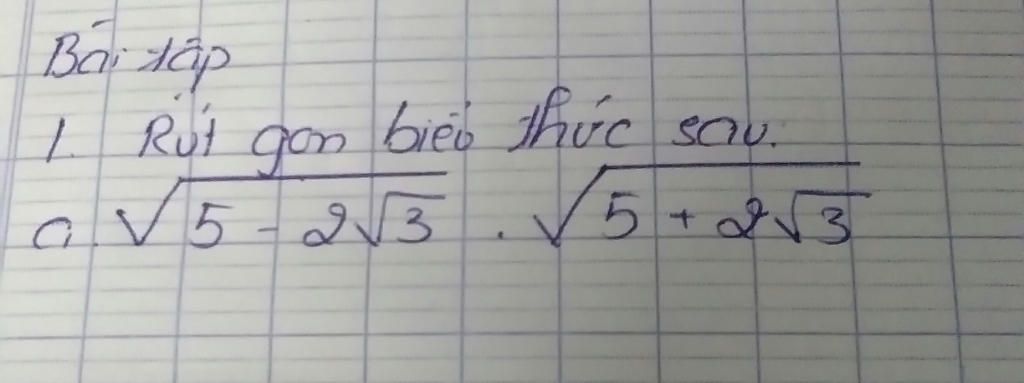 Bài tập
1. Rút gọn biểu thức sau.
a. √(5 - 2√3) . √(5 + 2√3)